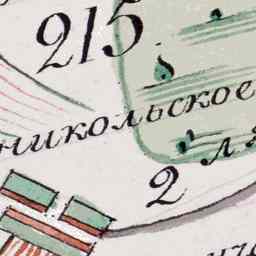 215
никольское
2